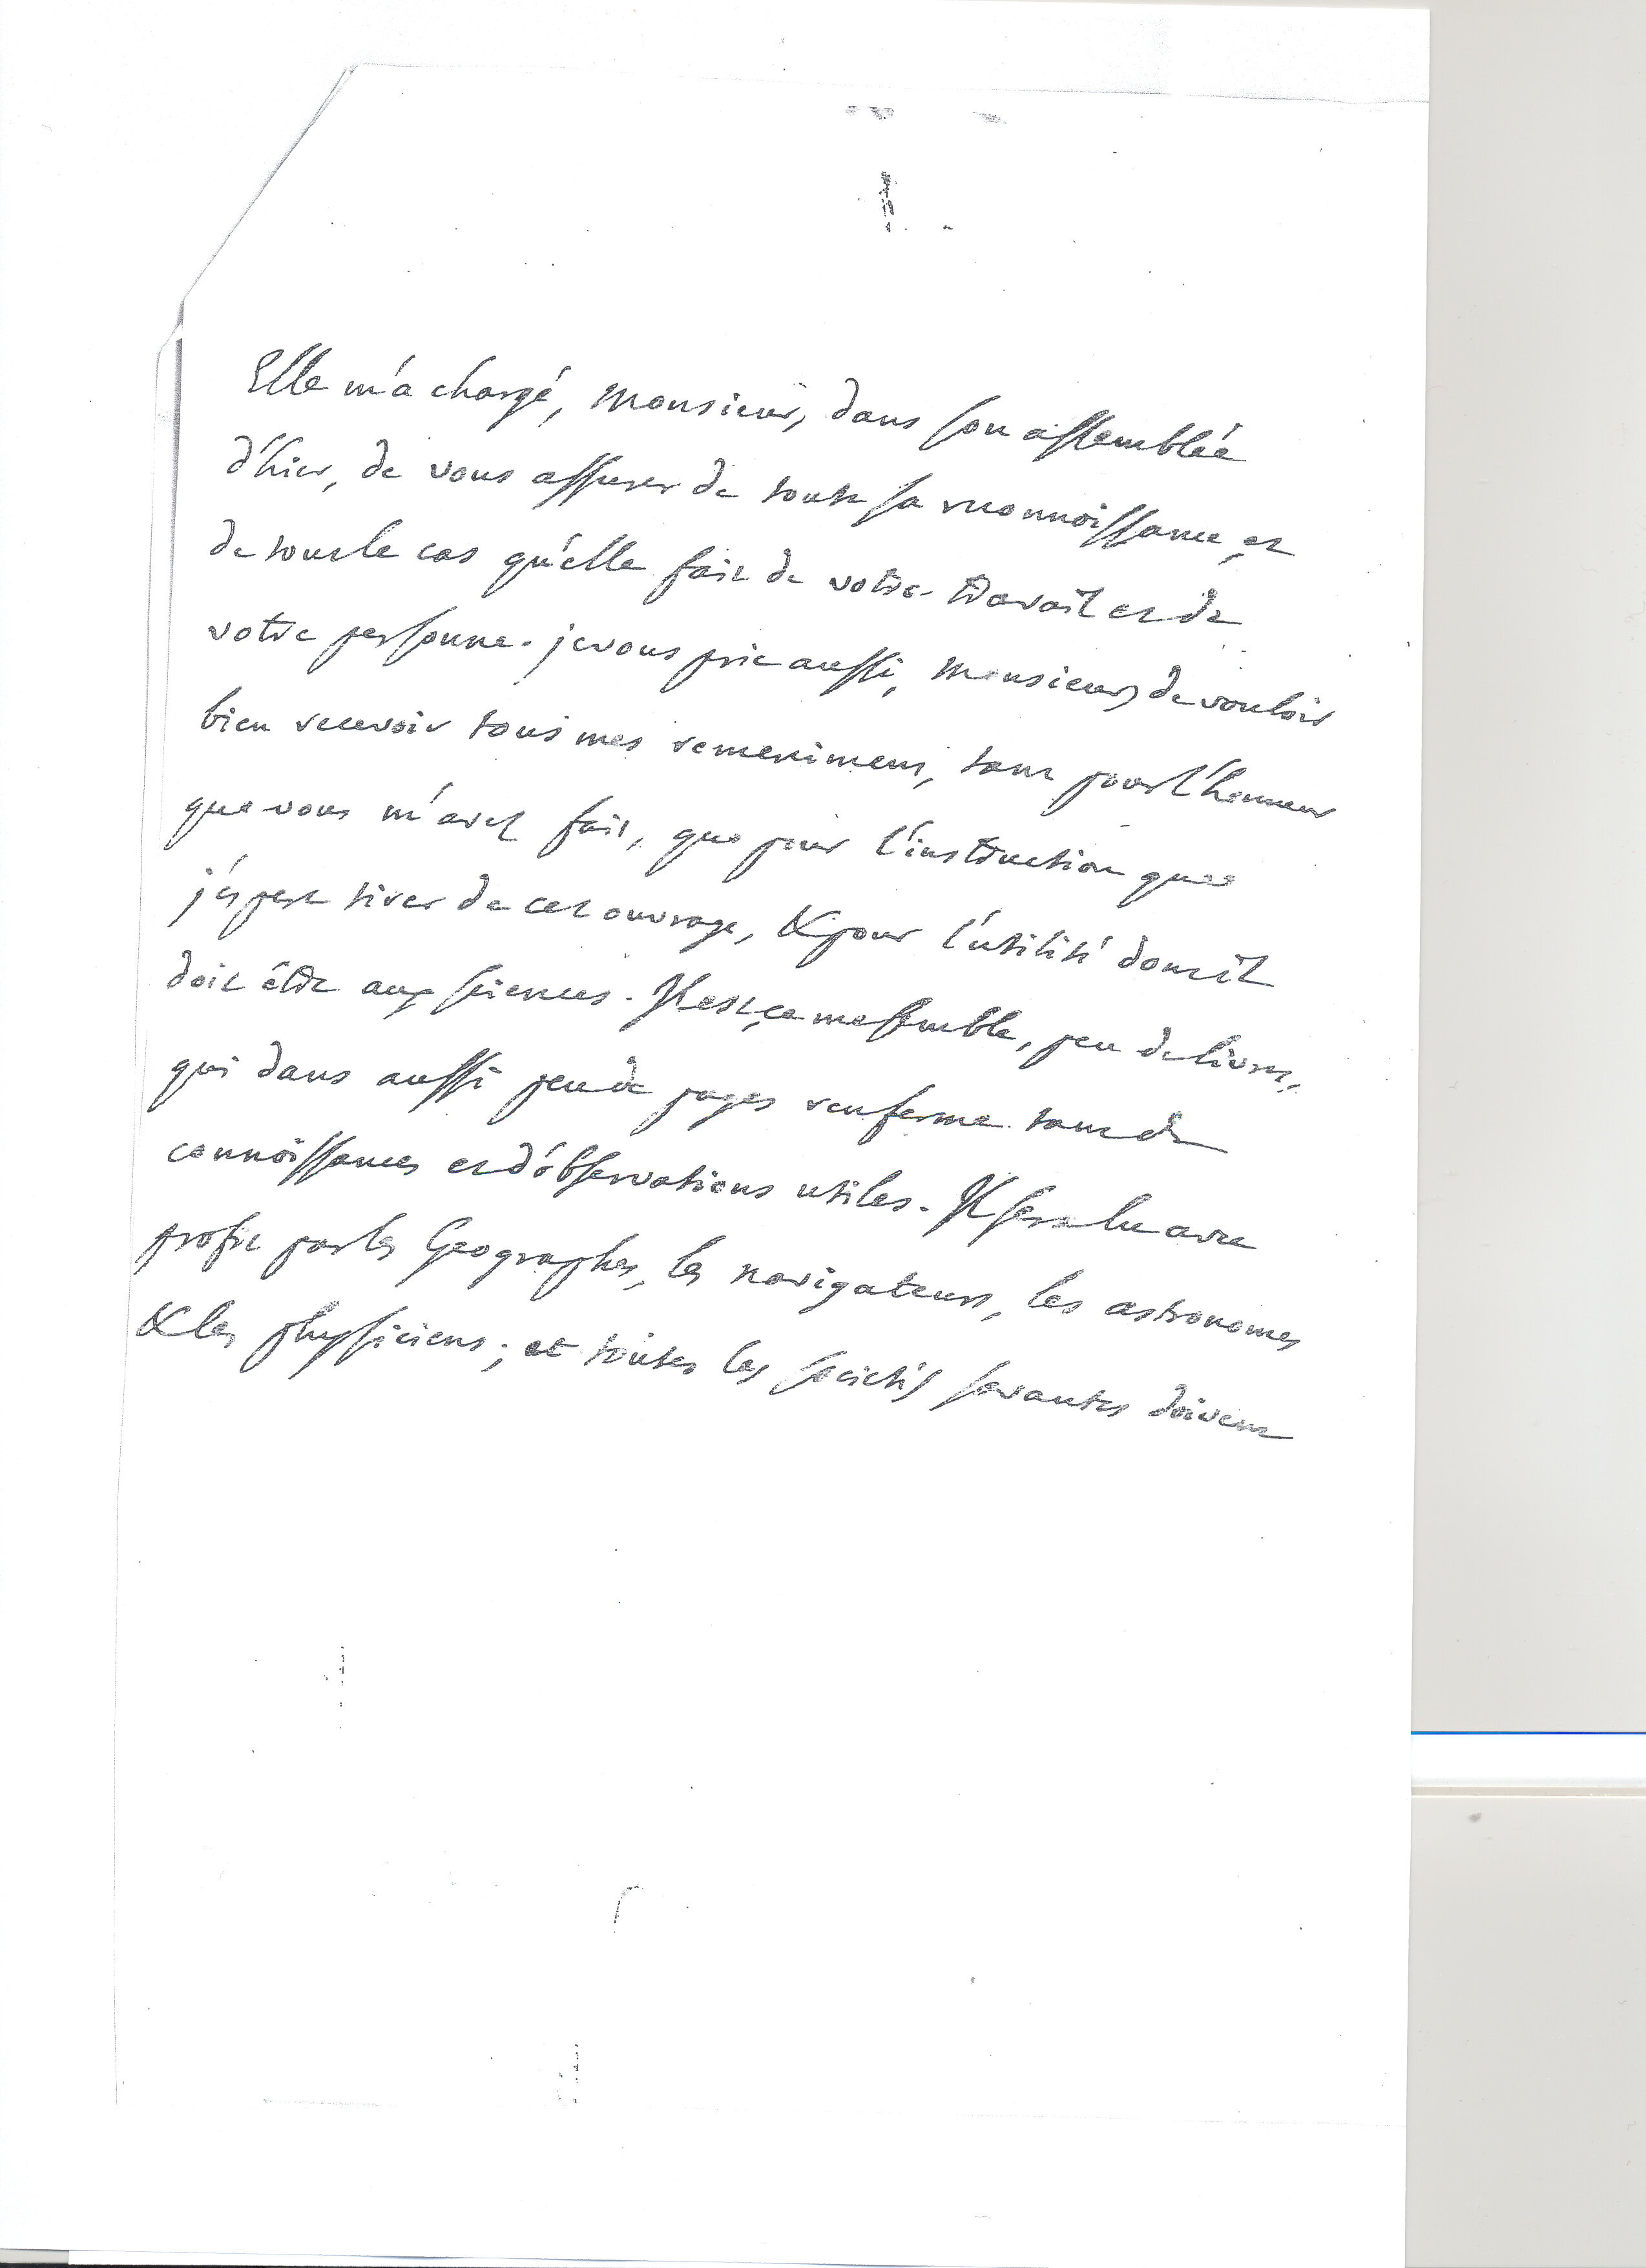 Elle m'a chargé, Monsieur, dans son assemblée
d'hier, de vous assurer de toute sa reconnoissance, et
de tout le cas qu'elle fait de votre travail et de
votre personne. je vous prie aussi, Monsieur, de vouloir
bien recevoir tous mes remercimens, tant pour l'honneur
que vous m'avez fait, que pour l'instruction que
j'éspere tirer de cet ouvrage, & pour l'utilité dont il
doit être aux sciences. Il est, ce me semble, peu de livres,
qui dans aussi peu de pages renferme tant de
connoissances et d'observations utiles. Il sera lu avec
profit par les Geographes, les navigateurs, les astronomes
& les physiciens ; et toutes les sociétés savantes doivent